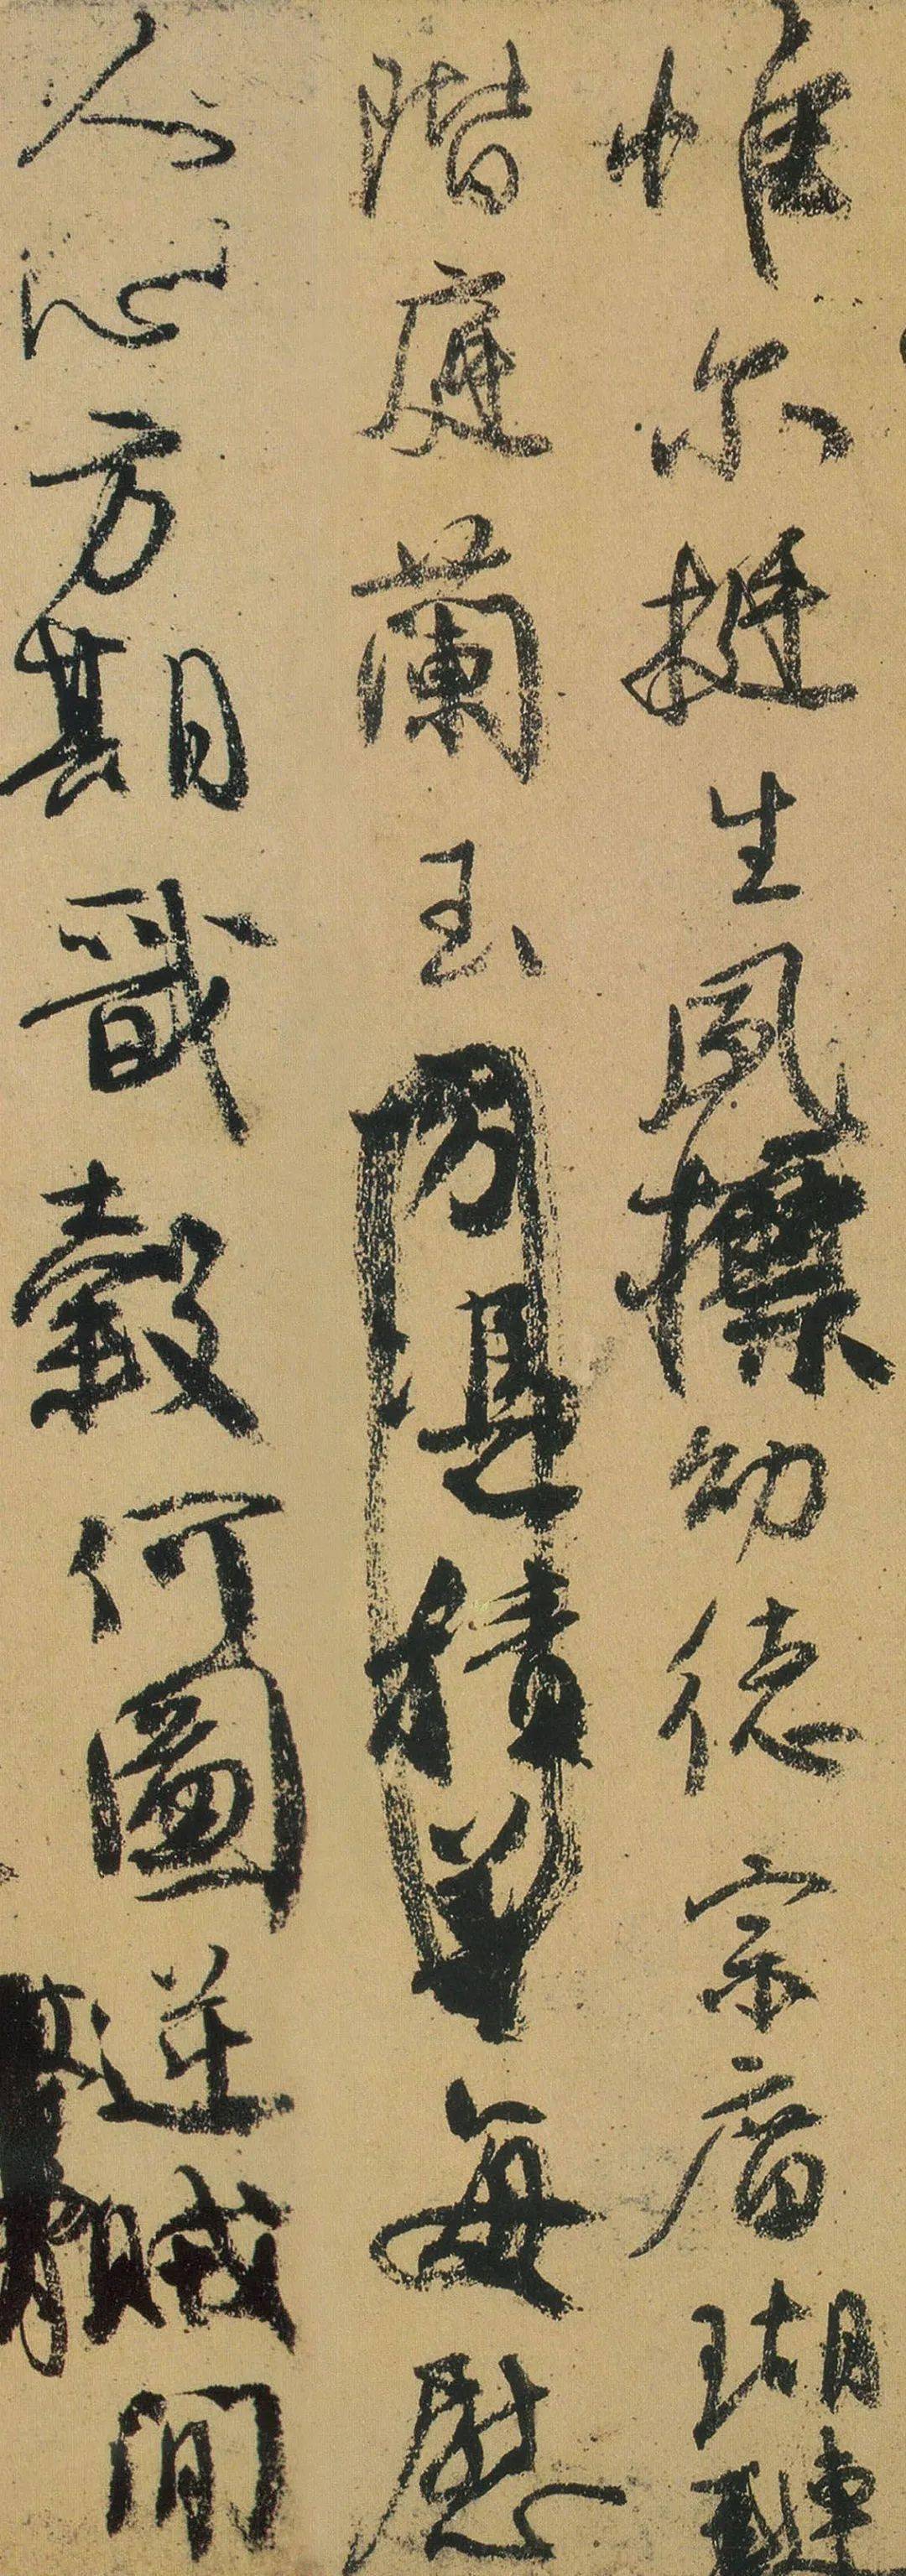 惟尔挺生夙標幼德宗廟瑚璉
階庭蘭玉方憑積善每慰
人心方期戩穀何圖逆賊間